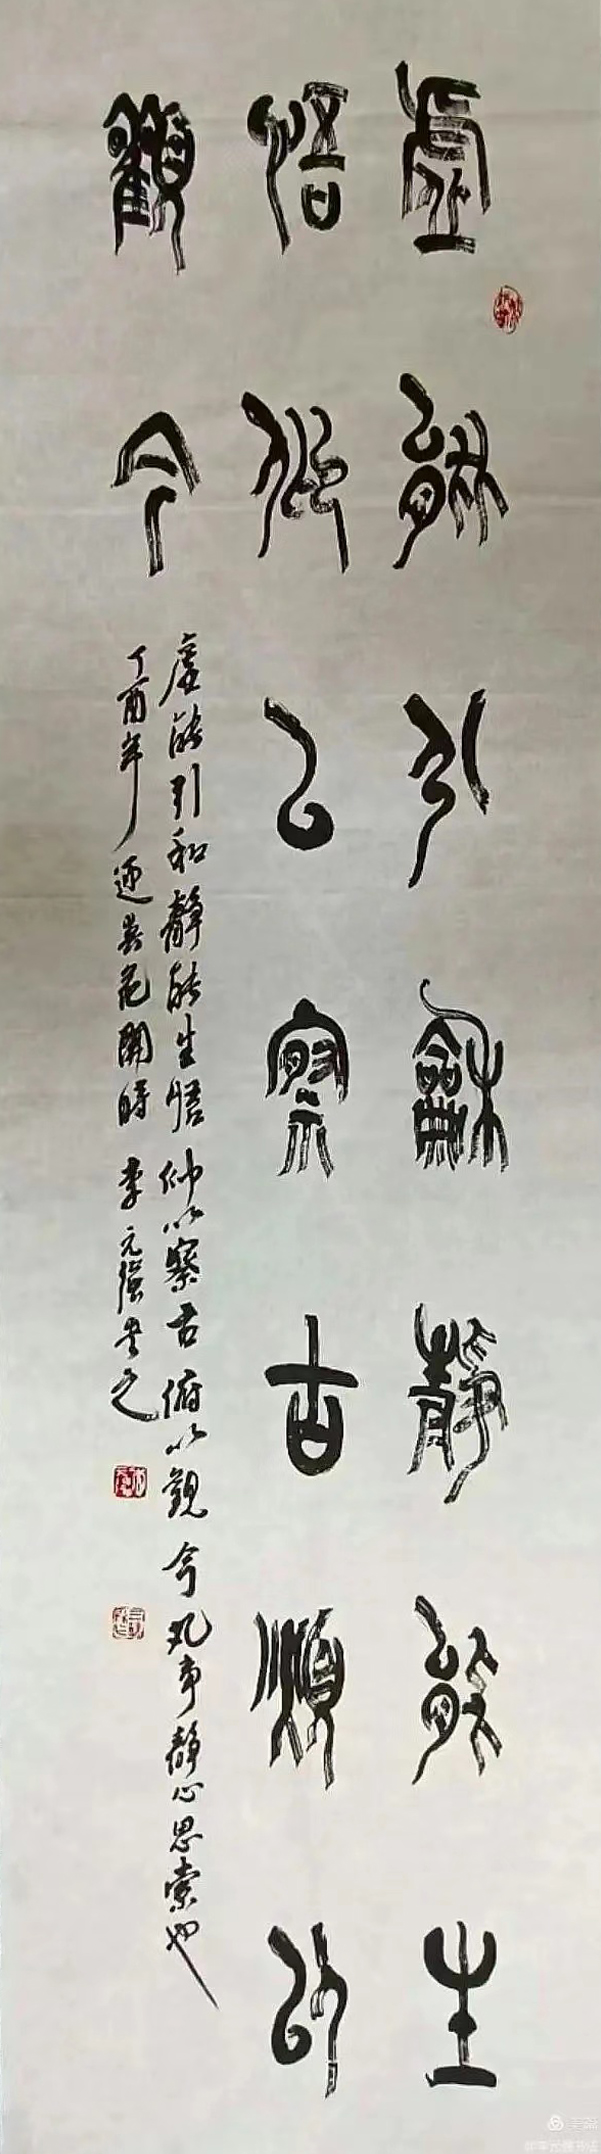 虚能引和静能生
悟仰以察古俯以
观今
虚能引和静能生悟仰以察古俯以观今凡事静心思索也
丁酉年迎春花开时李元强书之